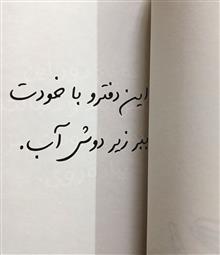 این دفترو با خودت
ببر زیر دوش آب.